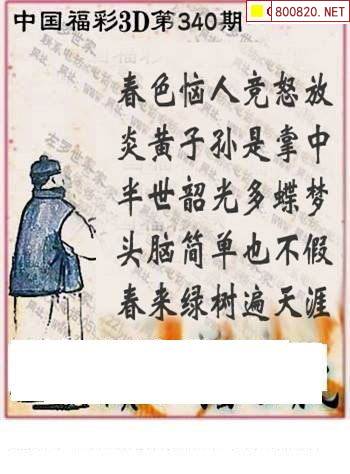 中国福彩3D第340期
800820.NET
春色恼人竞怒放
炎黄子孙是掌中
半世韶光多蝶梦
头脑简单也不假
春来绿树遍天涯